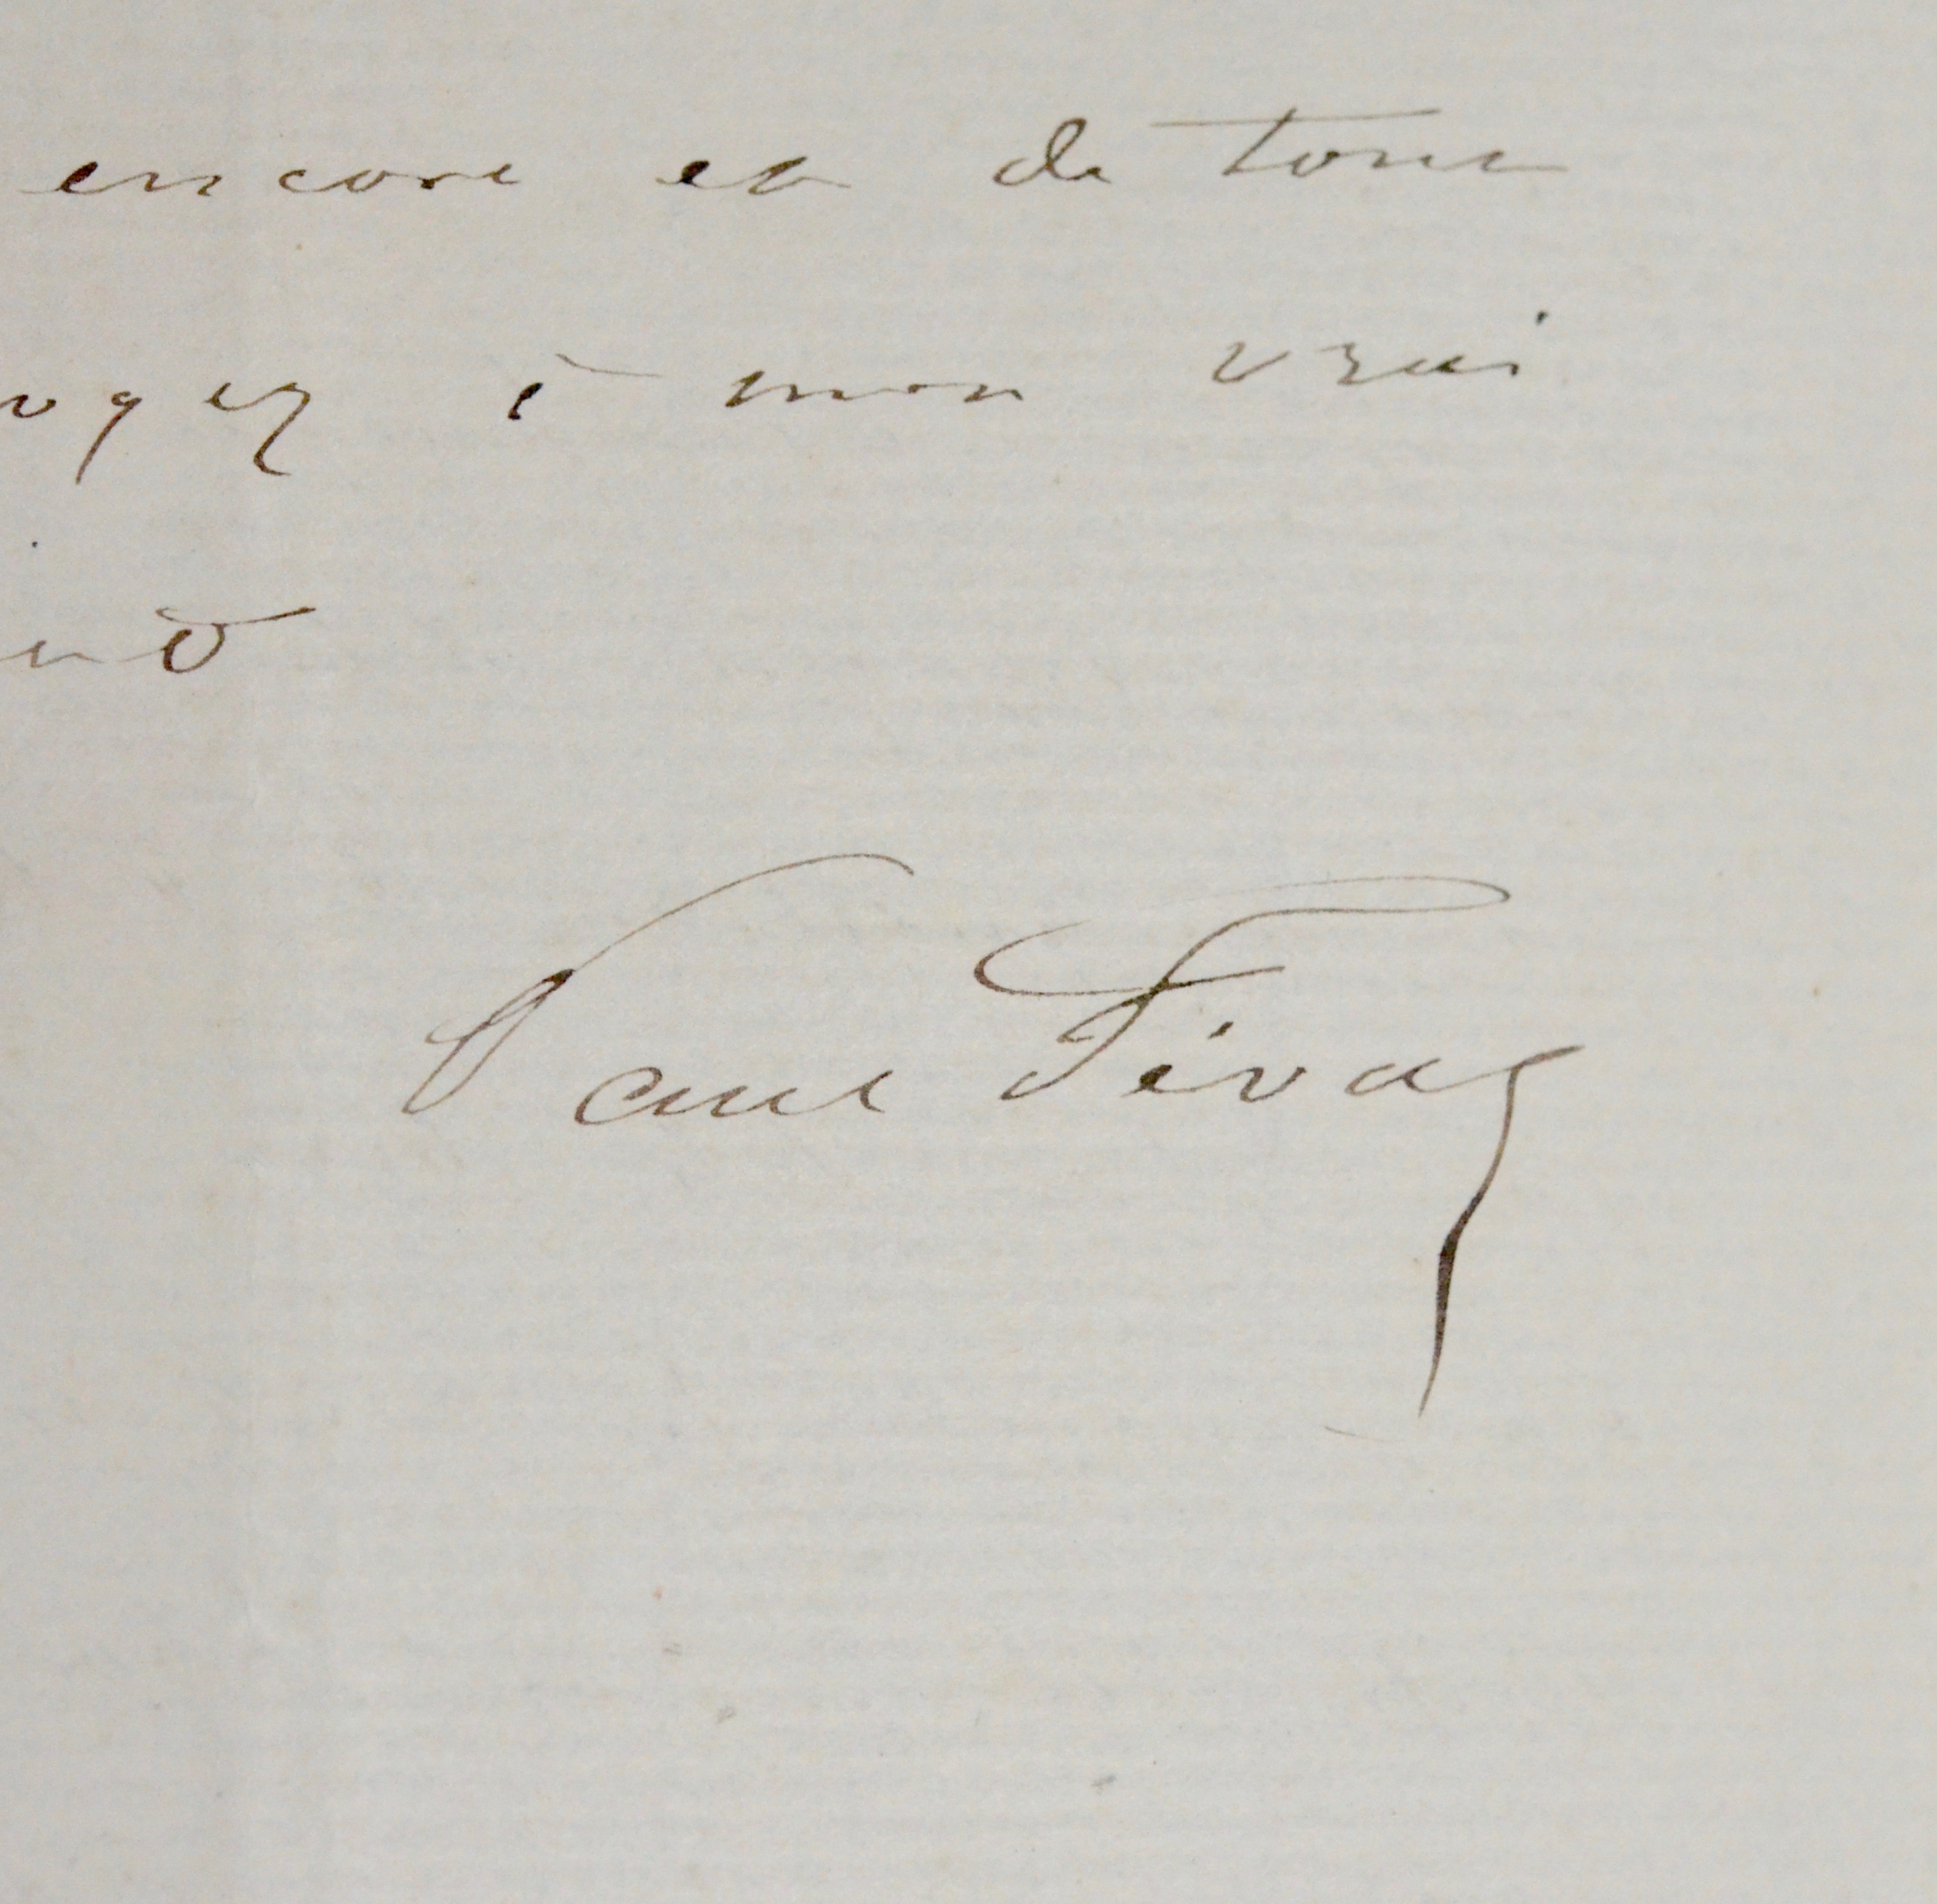 encore et de tout
oyez à mon vrai
Paul Féval